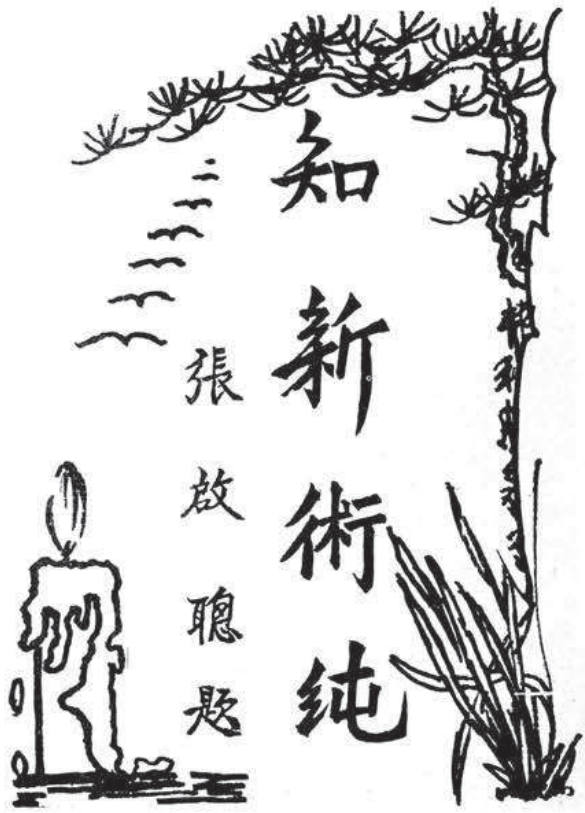 知新術纯
張啟聰題